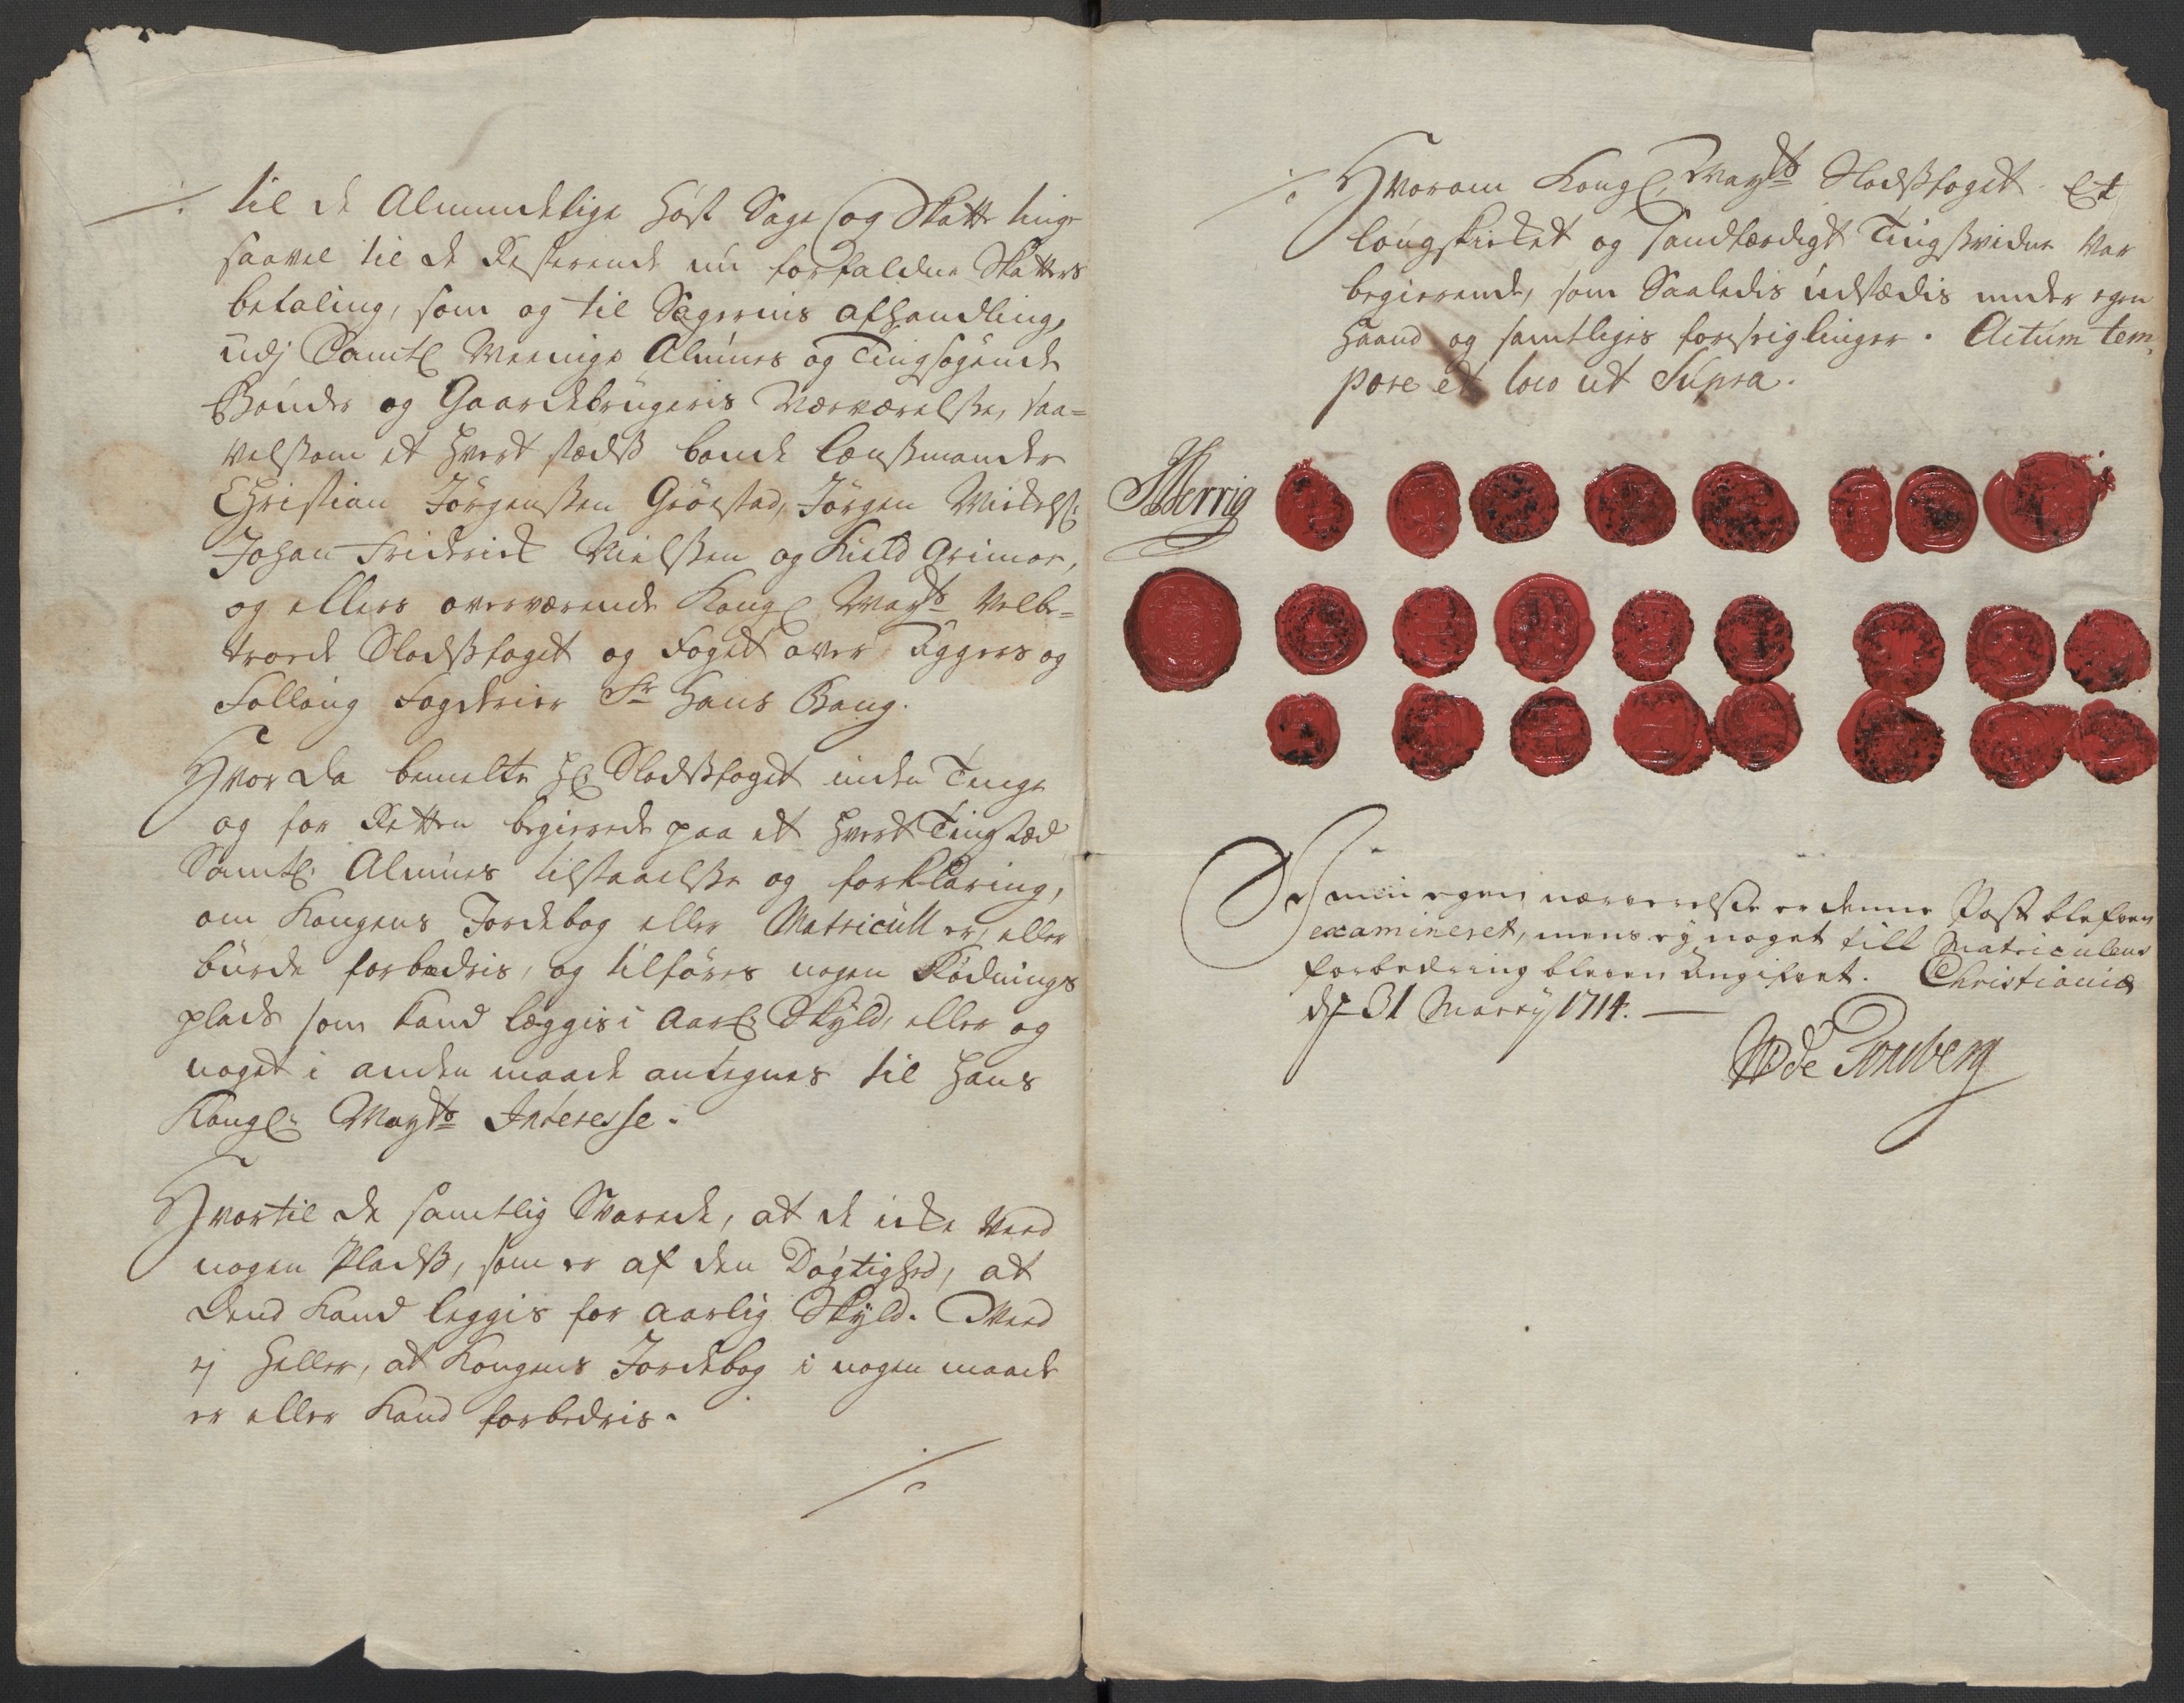 til de Almindelige Høst Sage og Skatte ting
saavel til de Resterende nu forfaldne Skatters
betaling, som og til Sagernis afhandling,
udj Samtl Meenige Almues og Tingsøgende
Bønder og Gaardebrugeris Nærværelsse, saa=
velsom et hvert stedss bonde Lensmænder
Christian Jörgenssen Gröestad, Jörgen Mickelss:
Johan Friderick Nielssen og Kield Grimoe,
og ellers overværende Kongl Mayts Velbe=
troede Slodssfoget og Foget over Aggers og
Folloug Fogderier Sr Hans Bang.
Hvor da bemelte Hr Slodssfoget inden Tinge
og for Retten begierede paa et hvert Tingstæd
Samtl: Almues tilstaaelsse og forklaring,
om Kongens Jordebog eller Matricull er, eller
burde forbedris, og tilföres nogen Rödnings
plads som kand læggis i Aarl: Skyld, eller og
noget i anden maade antegnes til Hans
Kongl: Mayts Interesse.
Hvortil de samtlig Svarede, at de icke veed
nogen Pladss, som er af den Døgtighed, at
dend kand leggis for aarlig Skyld. Veed
ej heller, at Kongens Jordebog i nogen maade
er eller kand forbedris.
Hvorom Kongl Mayts Slodssfoget Et
lougskicket og sandfærdigt Tingssvidne var
begierende, som Saaledis udstædis under egen
haand og samtliges forseiglinger. Actum tem
pore et loco ut Supra.
Werrig
I min egen nærverelsse er denne Post blefven
examineret, mens ey noget till Matriculens
forbedring bleven Angifvet. Christiania
d 31 Martij 1714.
de Tonsberg